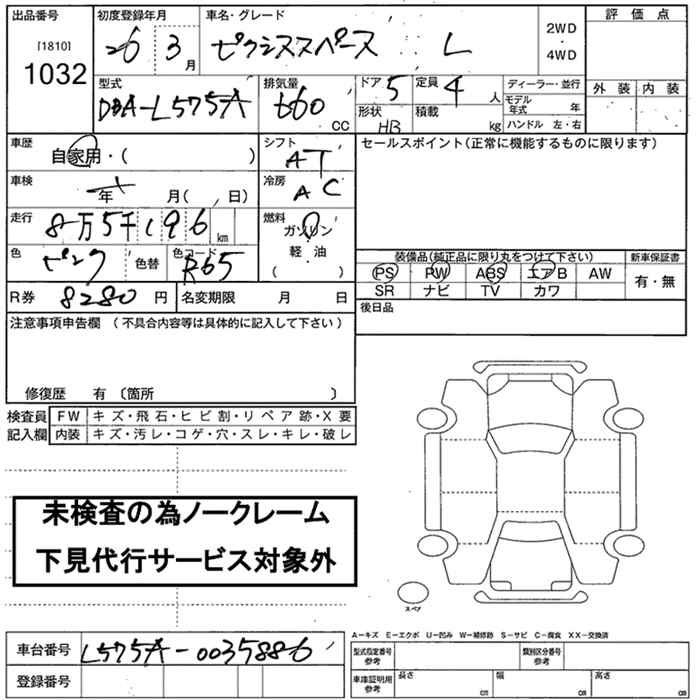 出品番号 初度登録年月 車名・グレード 2WD 評価点
[1810] 26 3月 ピクシススペース L 4WD
1032 型式 排気量 ドア 5 定員 4人 ディーラー・並行 外装 内装
DBA-L575A 660 CC 形状 HB 積載 kg モデル年式 年
ハンドル 左・右
車歴 自家用・( ) シフト AT セールスポイント(正常に機能するものに限ります)
車検 年 月( 、 日) 冷房 AC
走行 8万5千196 km 燃料 ガソリン
軽・油
色 ピンク 色替 色コード R65 ( )
装備品(純正品に限り丸をつけて下さい) 新車保証書
PS PW ABS エアB AW 有・無
SR ナビ TV カワ
R券 8280円 名変期限 月 日 後日品
注意事項申告欄 (不具合内容等は具体的に記入して下さい)
修復歴 有 〔箇所 〕
検査員 FW キズ・飛石・ヒビ割・リペア跡・X要
記入欄 内装 キズ・汚レ・コゲ・穴・スレ・キレ・破レ
未検査の為ノークレーム
下見代行サービス対象外
スペア
A−キズ E−エクボ U−凹み W−補修跡 S−サビ C−腐食 XX−交換済
車台番号 L575A-0035886 型式指定番号 参考 類別区分番号 参考
登録番号 車庫証明用 参考 長さ cm 幅 cm 高さ cm